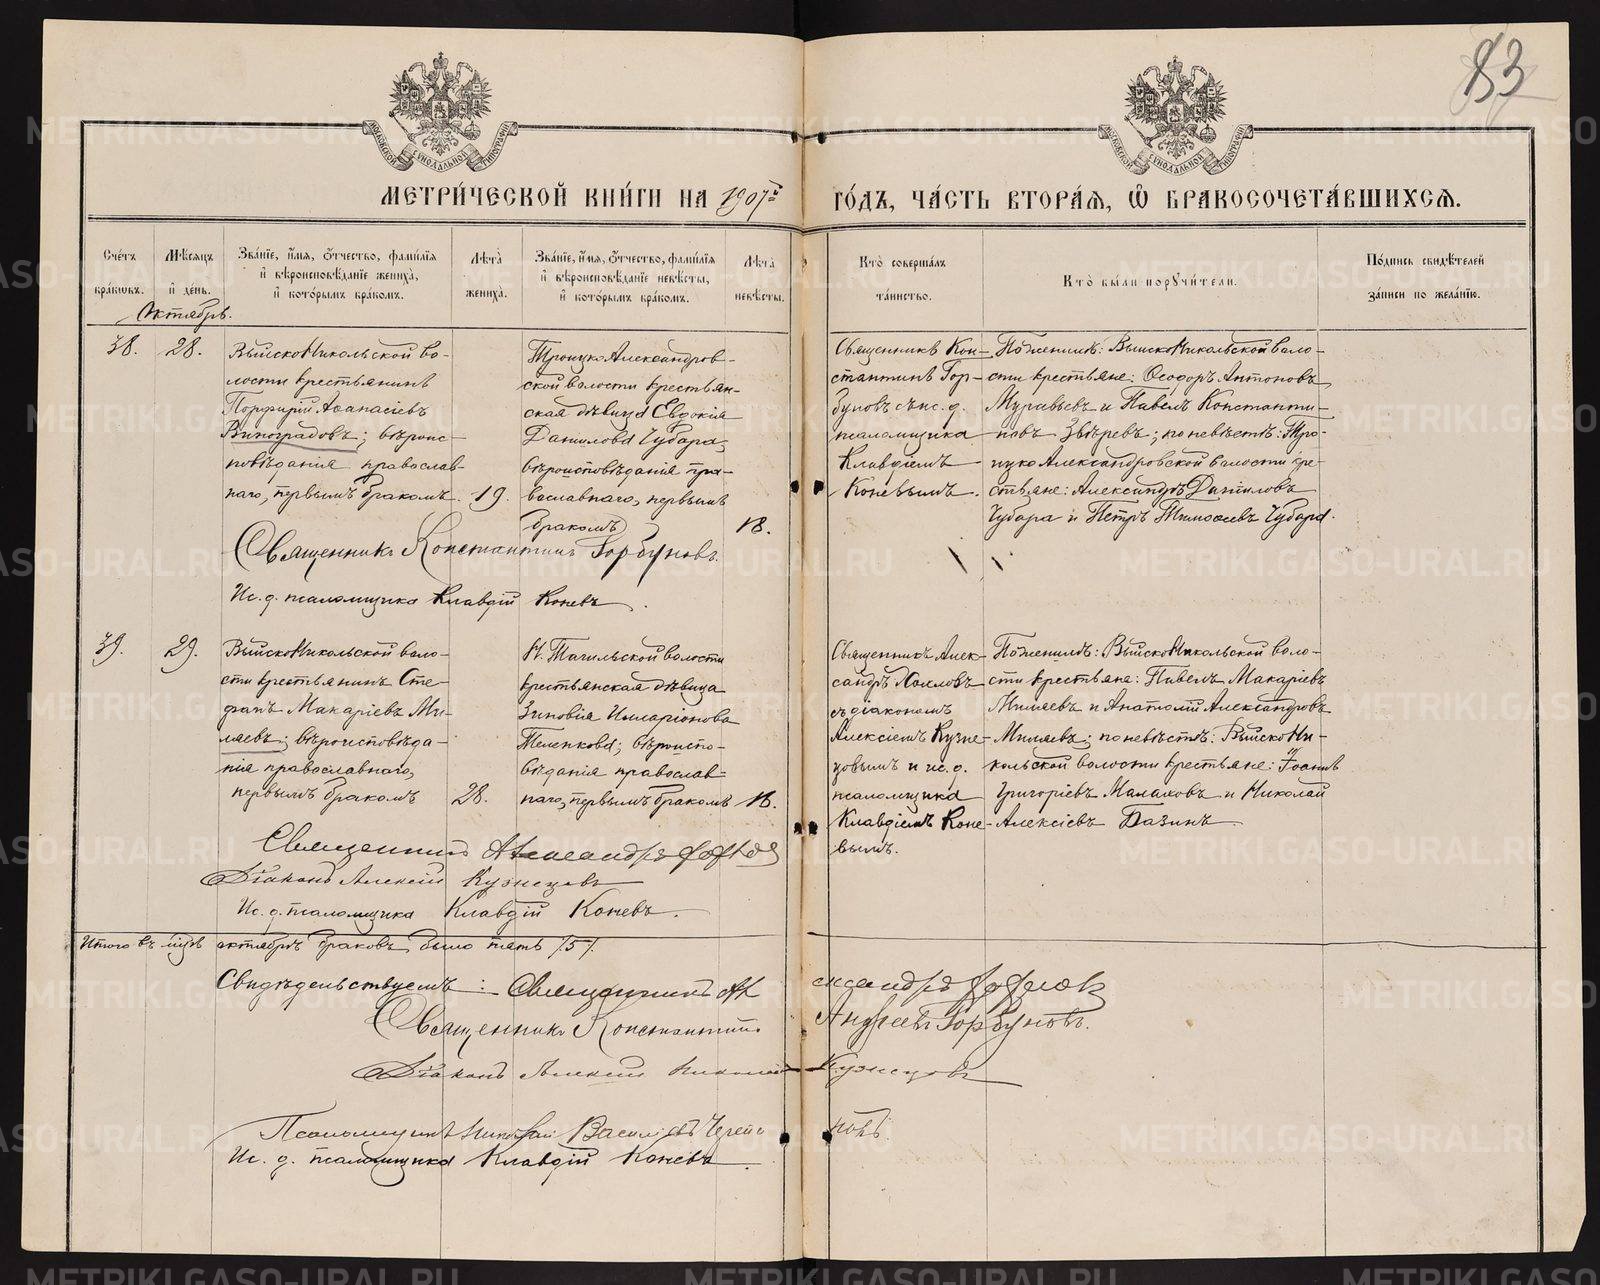 83
МЕТРИ́ЧЕСКОЙ КНИ́ГИ НА 1907й ГО́ДЪ, ЧА́СТЬ ВТОРА́Я, Ѽ БРАКОСОЧЕТА́ВШИХСЯ.
Счётъ бра́ковъ.
Мѣ́сяцъ и де́нь.
Зва́нїе, и́мя, о́тчество, фами́лїя
и вѣроисповѣ́данїе жениха̀,
и кото́рымъ бра́комъ.
Лѣта̀ жениха̀.
Зва́нїе, и́мя, о́тчество, фами́лїя
и вѣроисповѣ́данїе невѣ́сты,
и кото́рымъ бра́комъ.
Лѣта̀ невѣ́сты.
Кто̀ соверша́лъ
та́инство.
Кто̀ бы́ли поручи́тели.
По́дпись свидѣ́телей
за́писи по жела́нїю.
Октябрь.
38.
28.
ВыйскоНикольской во-
лости крестьянинъ
Порфирій Аѳанасіевъ
Виноградовъ; вѣроис-
повѣданія православ-
наго, первымъ бракомъ.
19.
ТроицкоАлександров-
ской волости крестьян-
ская дѣвица Евдокія
Данилова Чубара,
вѣроисповѣданія пра-
вославнаго, первымъ
бракомъ
18.
Священникъ Кон-
стантинъ Гор-
буновъ съ ис. д.
псаломщика
Клавдіемъ
Коневымъ.
По женихѣ: ВыйскоНикольской воло-
сти крестьяне: Ѳеодоръ Антоновъ
Муравьевъ и Павелъ Константи-
новъ Звѣревъ; по невѣстѣ: Тро-
ицкоАлександровской волости кре-
стьяне: Александръ Даніиловъ
Чубара и Петръ Тимоѳеевъ Чубара.
Священникъ Константинъ Горбуновъ.
Ис. д. псаломщика Клавдій Коневъ.
39.
29.
ВыйскоНикольской воло-
сти крестьянинъ Сте-
фанъ Макаріевъ Ми-
ляевъ; вѣроисповѣда-
нія православнаго,
первымъ бракомъ
28.
Н. Тагильской волости
крестьянская дѣвица
Зиновія Илларіонова
Теленкова; вѣроиспо-
вѣданія православ-
наго, первымъ бракомъ
18.
Священникъ Алек-
сандръ
съ діакономъ
Алексіемъ Кузне-
цовымъ и ис. д.
псаломщика
Клавдіемъ Коне-
вымъ.
По женихѣ: ВыйскоНикольской воло-
сти крестьяне: Павелъ Макаріевъ
Миляевъ и Анатолій Александровъ
Миляевъ; по невѣстѣ: ВыйскоНи-
кольской волости крестьяне: Іоаннъ
Григоріевъ Малаховъ и Николай
Алексіевъ Базинъ.
Священникъ Александръ
Діаконъ Алексій Кузнецовъ
Ис. д. псаломщика Клавдій Коневъ.
Итого въ м̃цѣ октябрѣ браковъ было пять /5/.
Свидѣтельствуемъ: Священникъ Александръ
Священникъ Константинъ Андреевъ Горбуновъ.
Діаконъ Алексій Николаевъ Кузнецовъ
Псаломщикъ Николай Василіевъ
Ис. д. псаломщика Клавдій Коневъ.
METRIKI.GASO-URAL.RU